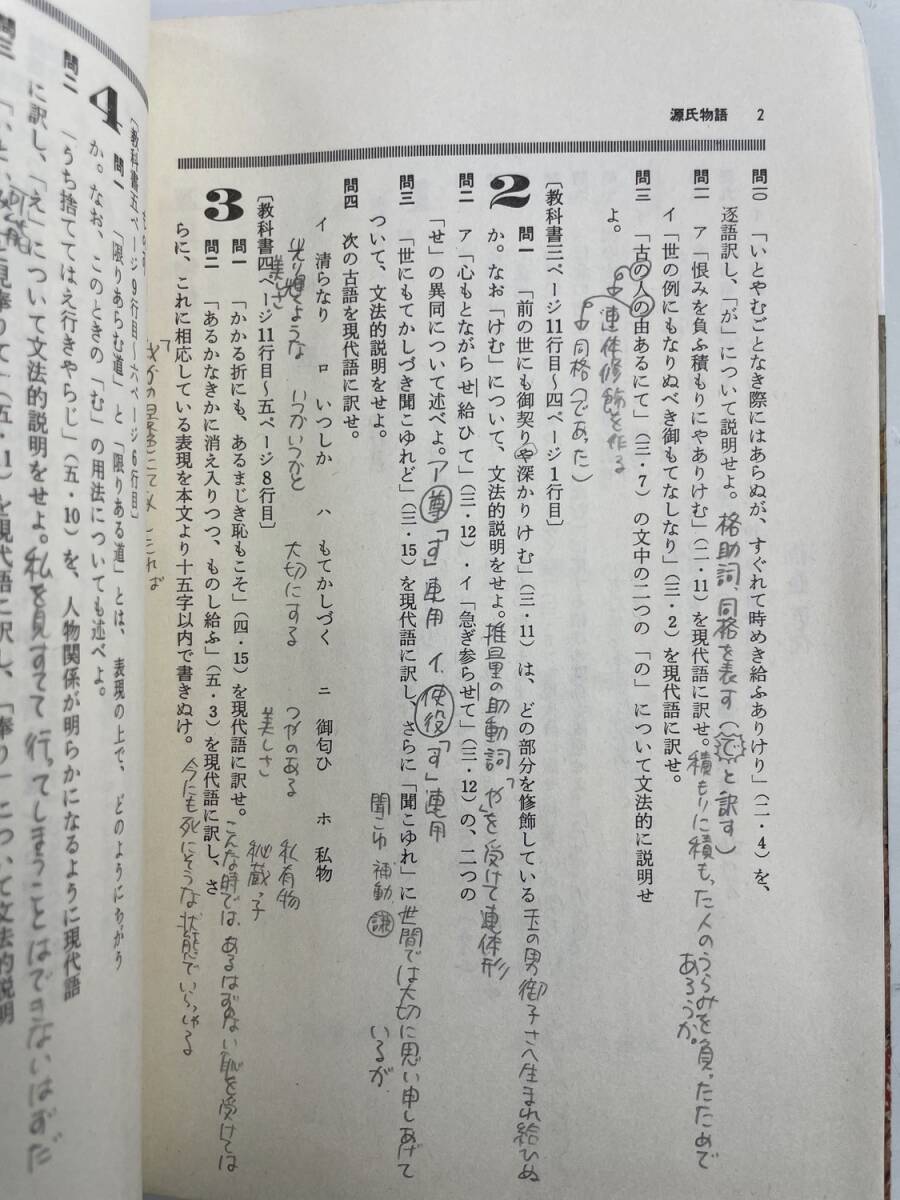 源氏物語 2
問一 「いとやむごとなき際にはあらぬが、すぐれて時めき給ふありけり」(二・4)を、
逐語訳し、「が」について説明せよ。格助詞、同格を表す(で と訳す)
問二 ア「恨みを負ふ積もりにやありけむ」(二・11)を現代語に訳せ。積もりに積もった人のうらみを負ったためで
あろうか。
イ「世の例にもなりぬべき御もてなしなり」(三・2)を現代語に訳せ。
問三 「古の人の由あるにて」(三・7)の文中の二つの「の」について文法的に説明せ
よ。
連体修飾を作る
同格(であった)
〔教科書三ページ11行目〜四ページ1行目〕
2
問一 「前の世にも御契りや深かりけむ」(三・11)は、どの部分を修飾している 玉の男御子さへ生まれ給ひぬ
か。なお「けむ」について、文法的説明をせよ。推量の助動詞「や」を受けて連体形
問二 ア「心もとながらせ給ひて」(三・12)・イ「急ぎ参らせて」(三・12)の、二つの
「せ」の異同について述べよ。ア 尊「す」連用 イ、使役「す」連用
問三 「世にもてかしづき聞こゆれど」(三・15)を現代語に訳し、さらに「聞こゆれ」に 世間では大切に思い申しあげて
いるが
ついて、文法的説明をせよ。
聞こゆ 補動 謙
問四 次の古語を現代語に訳せ。
イ 清らなり ロ いつしか ハ もてかしづく ニ 御匂ひ ホ 私物
光り輝くような 美しさ いつかいつかと 大切にする つやのある 美しさ 私有物 秘蔵っ子
〔教科書四ページ11行目〜五ページ8行目〕
3
問一 「かかる折にも、あるまじき恥もこそ」(四・15)を現代語に訳せ。こんな時では、あるはずのない恥を受けては
問二 「あるかなきかに消え入りつつ、ものし給ふ」(五・3)を現代語に訳し、さ
らに、これに相応している表現を本文より十五字以内で書きぬけ。今にも死にそうな状態でいらっしゃる
〔教科書五ページ9行目〜六ページ6行目〕
4
問一 「限りあらむ道」と「限りある道」とは、表現の上で、どのようにちがう
か。なお、このときの「む」の用法についても述べよ。
問二 「うち捨ててはえ行きやらじ」(五・10)を、人物関係が明らかになるように現代語
に訳し、「え」について文法的説明をせよ。私を見すてて行ってしまうことはできないはずだ
問三